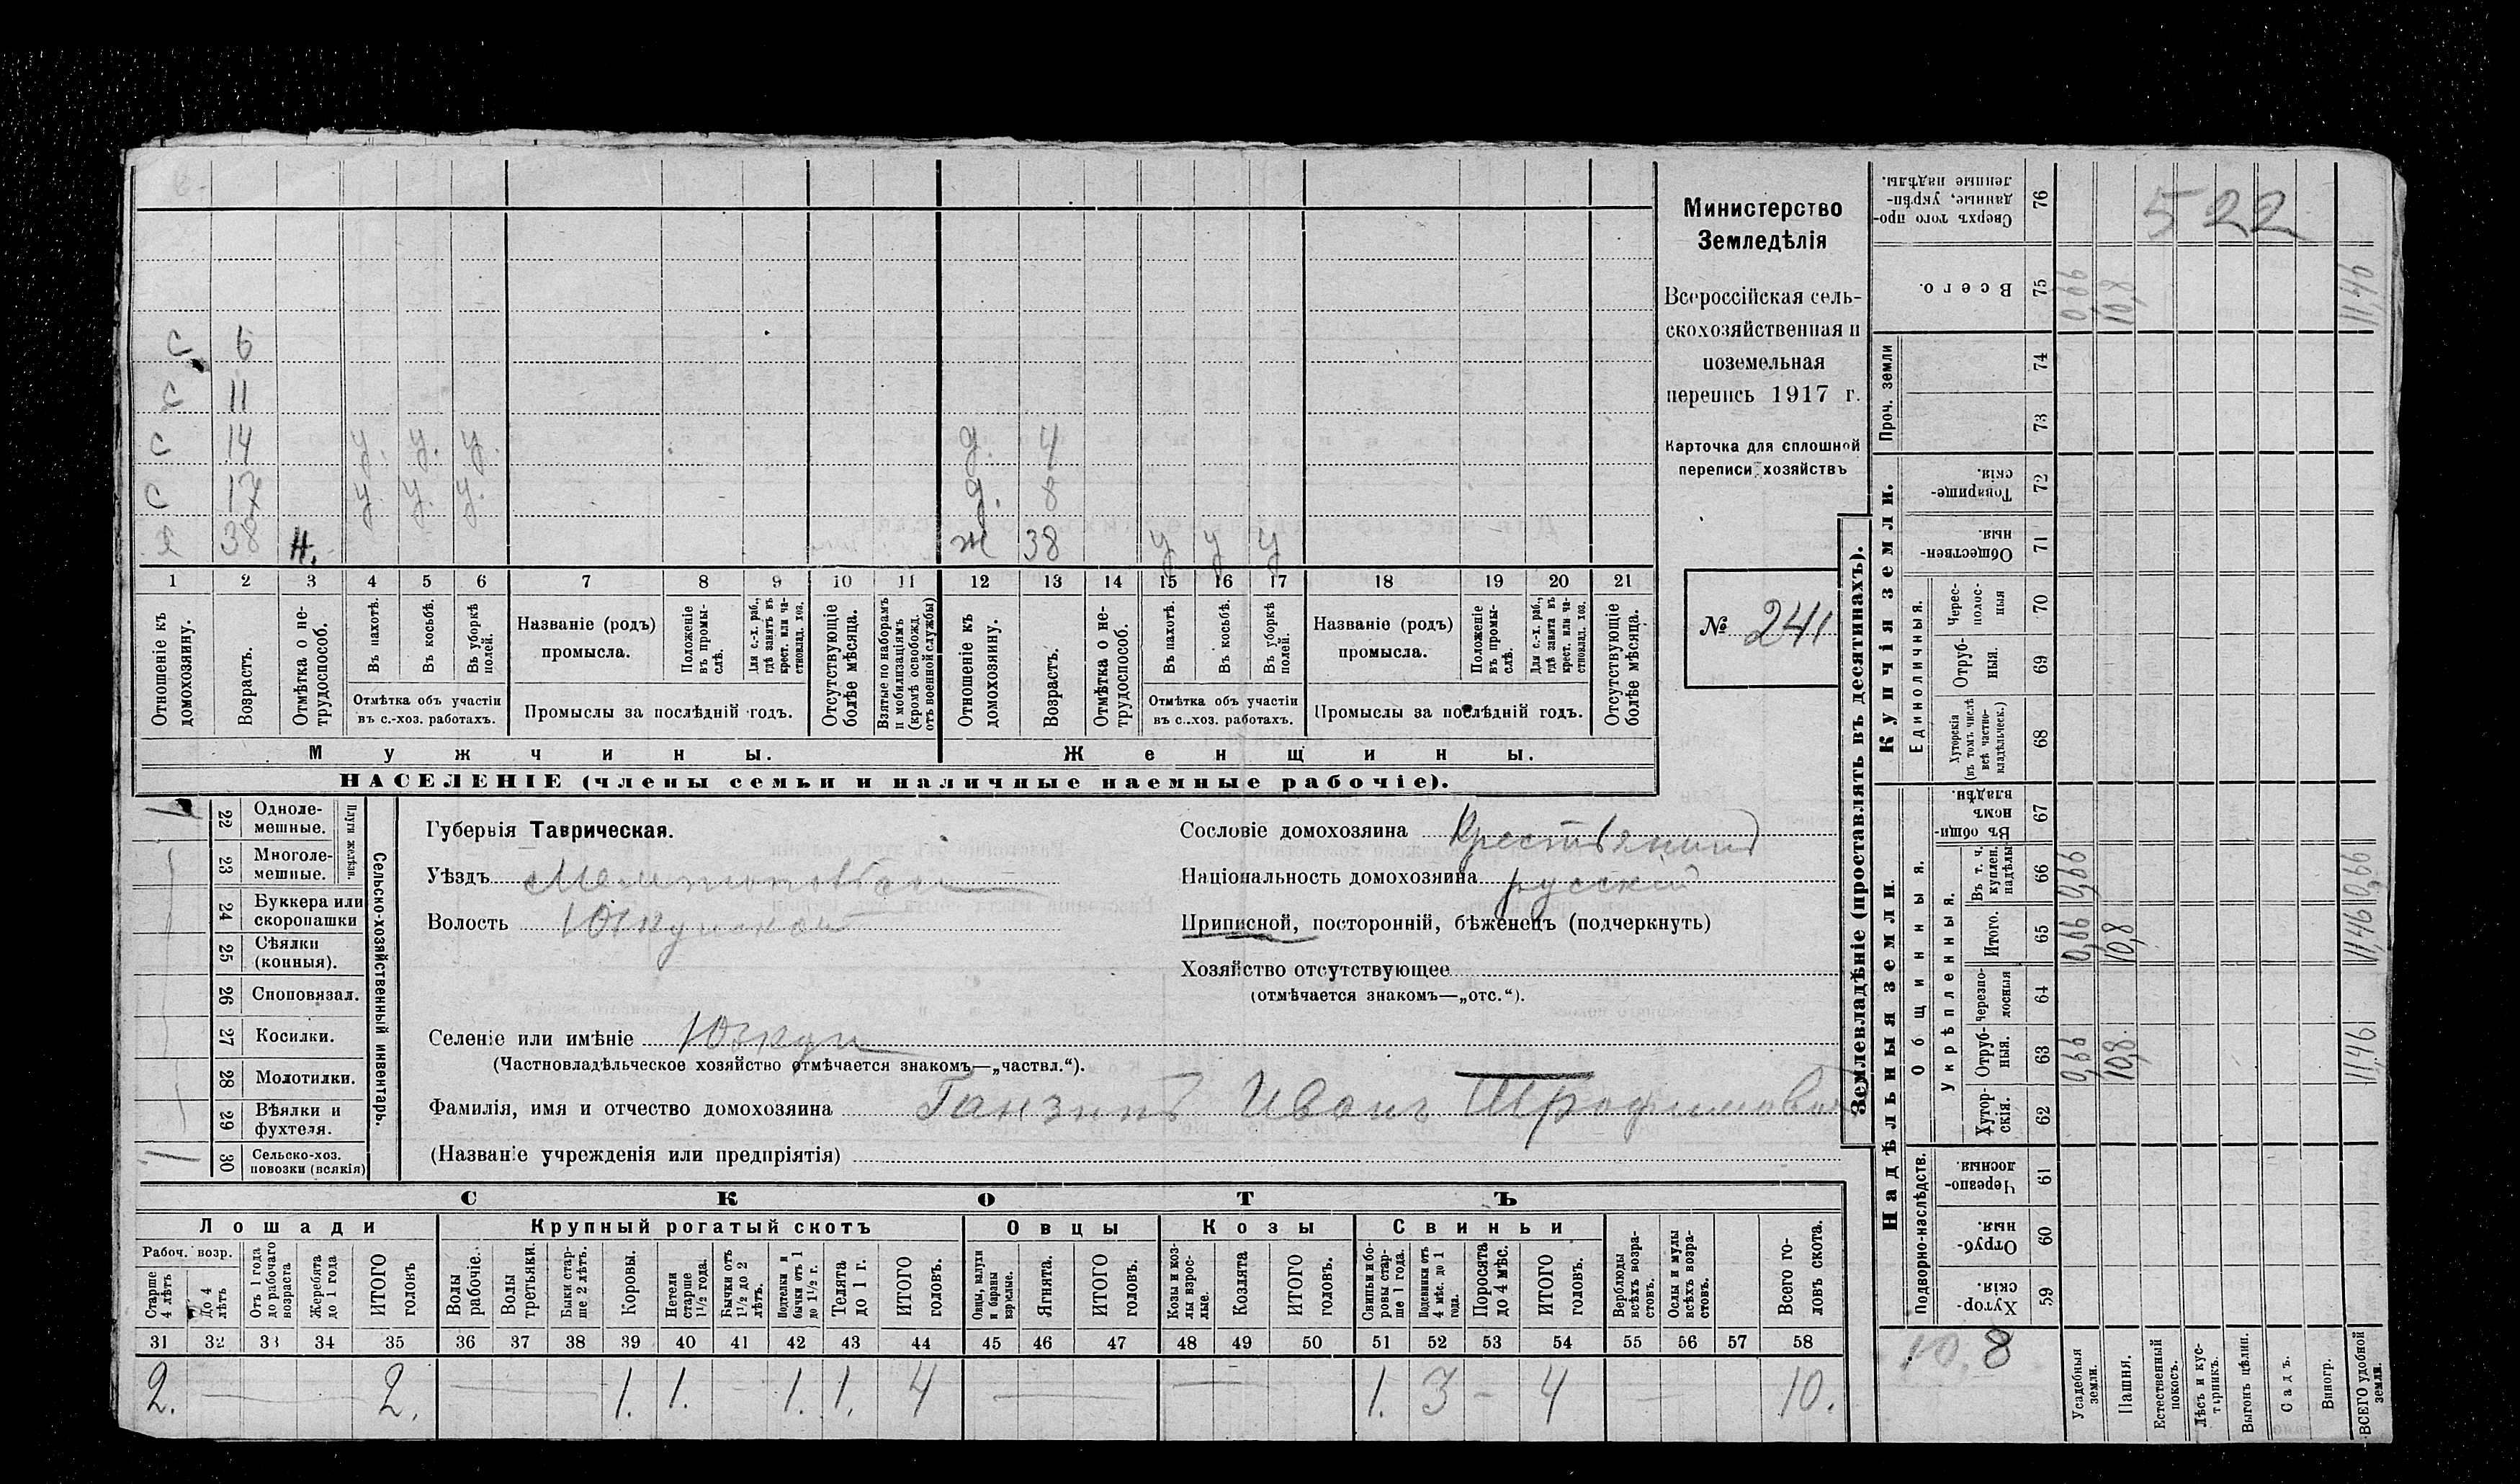 С 6
С 11
С 14 у. у. у. д. 4
С 17 у. у. у. д. 8
Я 38 н. ж 38 у у у
1 2 3 4 5 6 7 8 9 10 11 12 13 14 15 16 17 18 19 20 21
Отношеніе къ домохозяину.
Возрастъ.
Отмѣтка о не-трудоспособ.
Въ пахотѣ.
Въ косьбѣ.
Въ уборкѣ полей.
Отмѣтка объ участіи
въ с.-хоз. работахъ.
Названіе (родъ)
промысла.
Положеніе въ промы-слѣ.
Для с.-х. раб., гдѣ занятъ въ крест. или ча-стновлад. хоз.
Промыслы за послѣдній годъ.
Отсутствующіе болѣе мѣсяца.
Взятые по наборамъ и мобилизаціямъ (кромѣ освобожд. отъ военной службы)
Отношеніе къ домохозяину.
Возрастъ.
Отмѣтка о не-трудоспособ.
Въ пахотѣ.
Въ косьбѣ.
Въ уборкѣ полей.
Отмѣтка объ участіи
въ с..хоз. работахъ.
Названіе (родъ)
промысла.
Положеніе въ промы-слѣ.
Для с.-х. раб., гдѣ занята въ крест. или ча-стновлад. хоз.
Промыслы за послѣдній годъ.
Отсутствующіе болѣе мѣсяца.
Мужчины. Женщины.
НАСЕЛЕНІЕ (члены семьи и наличные наемные рабочіе).
Министерство
Земледѣлія
Всероссійская сель-
скохозяйственная и
поземельная
перепись 1917 г.
Карточка для сплошной
переписи хозяйствъ
№ 241
22 Одноле-мешные.
23 Многоле-мешные.
Плуги желѣзн.
24 Буккера или скоропашки
25 Сѣялки (конныя).
26 Сноповязал.
27 Косилки.
28 Молотилки.
29 Вѣялки и фухтеля.
30 Сельско-хоз. повозки (всякія)
Сельско-хозяйственный инвентарь.
Губернія Таврическая.
Уѣздъ Мелитопольскій
Волость
Селеніе или имѣніе
(Частновладѣльческое хозяйство отмѣчается знакомъ—„частвл.“).
Фамилія, имя и отчество домохозяина Ганзинъ Иванъ Трофимовъ
(Названіе учрежденія или предпріятія)
Сословіе домохозяина Крестьянинъ
Національность домохозяина русскій
Приписной, посторонній, бѣженецъ (подчеркнуть)
Хозяйство отсутствующее
(отмѣчается знакомъ—„отс.“).
СКОТЪ
Лошади Крупный рогатый скотъ Овцы Козы Свиньи
Рабоч. возр.
Старше 4 лѣтъ
До 4 лѣтъ
Отъ 1 года до рабочаго возраста
Жеребята до 1 года
ИТОГО головъ
Волы рабочіе.
Волы третьяки.
Быки стар-ше 2 лѣтъ.
Коровы.
Нетели старше 1 1/2 года.
Бычки отъ 1 1/2 до 2 лѣтъ.
Подтелки и бычки отъ 1 до 1 1/2 г.
Телята до 1 г.
ИТОГО головъ.
Овцы, валухи и бараны взрослые.
Ягнята.
ИТОГО головъ.
Козы и коз-лы взрос-лые.
Козлята
ИТОГО головъ.
Свиньи и бо-ровы стар-ше 1 года.
Подсвинки отъ 4 мѣс. до 1 года.
Поросята до 4 мѣс.
ИТОГО головъ.
Верблюды всѣхъ возра-стовъ.
Ослы и мулы всѣхъ возра-стовъ.
Всего го-ловъ скота.
31 32 33 34 35 36 37 38 39 40 41 42 43 44 45 46 47 48 49 50 51 52 53 54 55 56 57 58
2. — 2. — 1. 1. — 1. 1. 4 — — 1. 3 - 4 — 10.
Землевладѣніе (проставлять въ десятинахъ).
Купчія земли.
Надѣльныя земли.
Сверхъ того про-данные, укрѣп-ленные надѣлы. 76 522
Всего. 75 0,66 10,8 11,46
Проч. земли
74
73
Товарище-скія. 72
Обществен-ныя. 71
Единоличныя.
Черес-полос-ныя 70
Отруб-ныя. 69
Хуторскія (въ томъ числѣ всѣ частно-владѣльческ.) 68
Общинныя.
Въ общи-номъ владѣн. 67
Укрѣпленныя.
Въ т. ч. куплен. надѣлы 66 0,66 0,66
Итого. 65 0,66 10,8 11,46
Черезпо-лосныя 64
Отруб-ныя. 63 0,66 10,8. 11,46
Хутор-скія. 62
Подворно-наслѣдств.
Черезпо-лосныя. 61
Отруб-ныя. 60
Хутор-скія. 59
10.8
Усадебныя земли.
Пашня.
Естественный покосъ.
Лѣсъ и кус-тарникъ.
Выгонъ цѣлин.
Садъ.
Виногр.
ВСЕГО удобной земли.